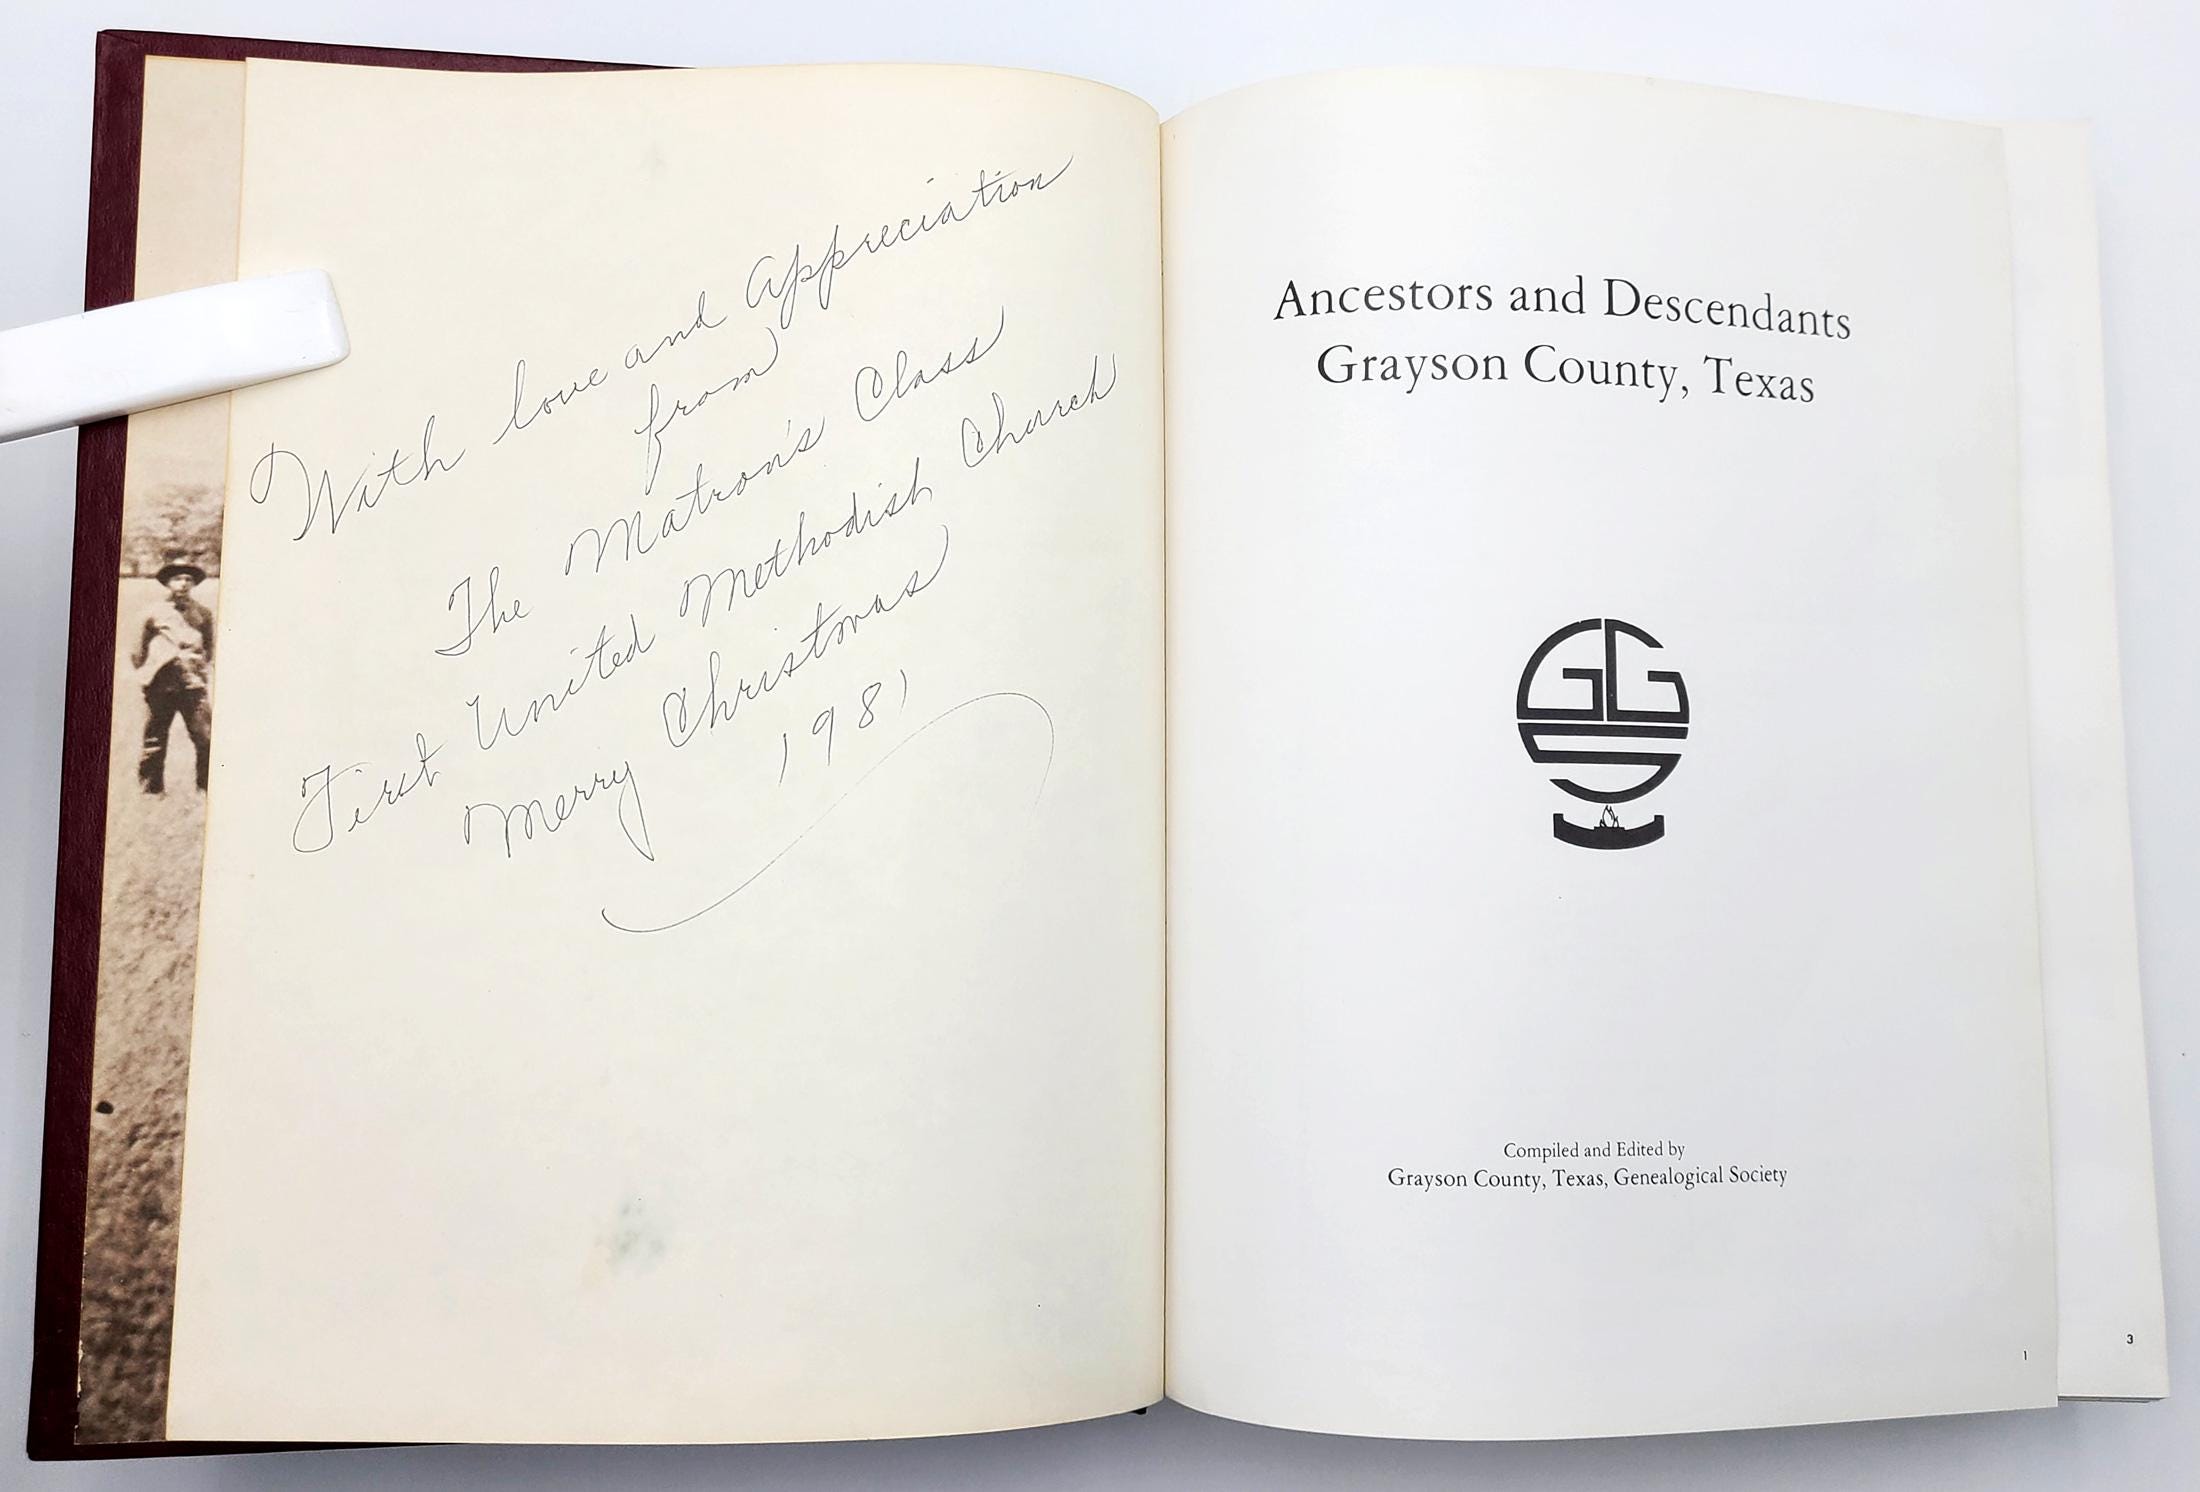 With love and Appreciation
from
The Matron's Class
First United Methodist Church
Merry Christmas
1981
Ancestors and Descendants
Grayson County, Texas
GCGS
Compiled and Edited by
Grayson County, Texas, Genealogical Society
1
3